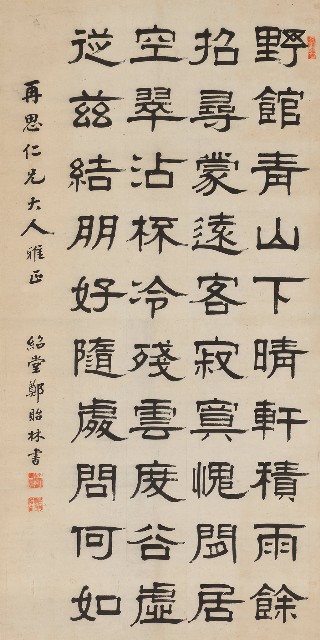 野館青山下晴軒積雨餘
招尋蒙遠客寂寞愧閭居
空翠沾杯冷殘雲度谷虛
從茲結朋好隨處問何如
再思仁兄大人雅正
紹堂鄭貽林書